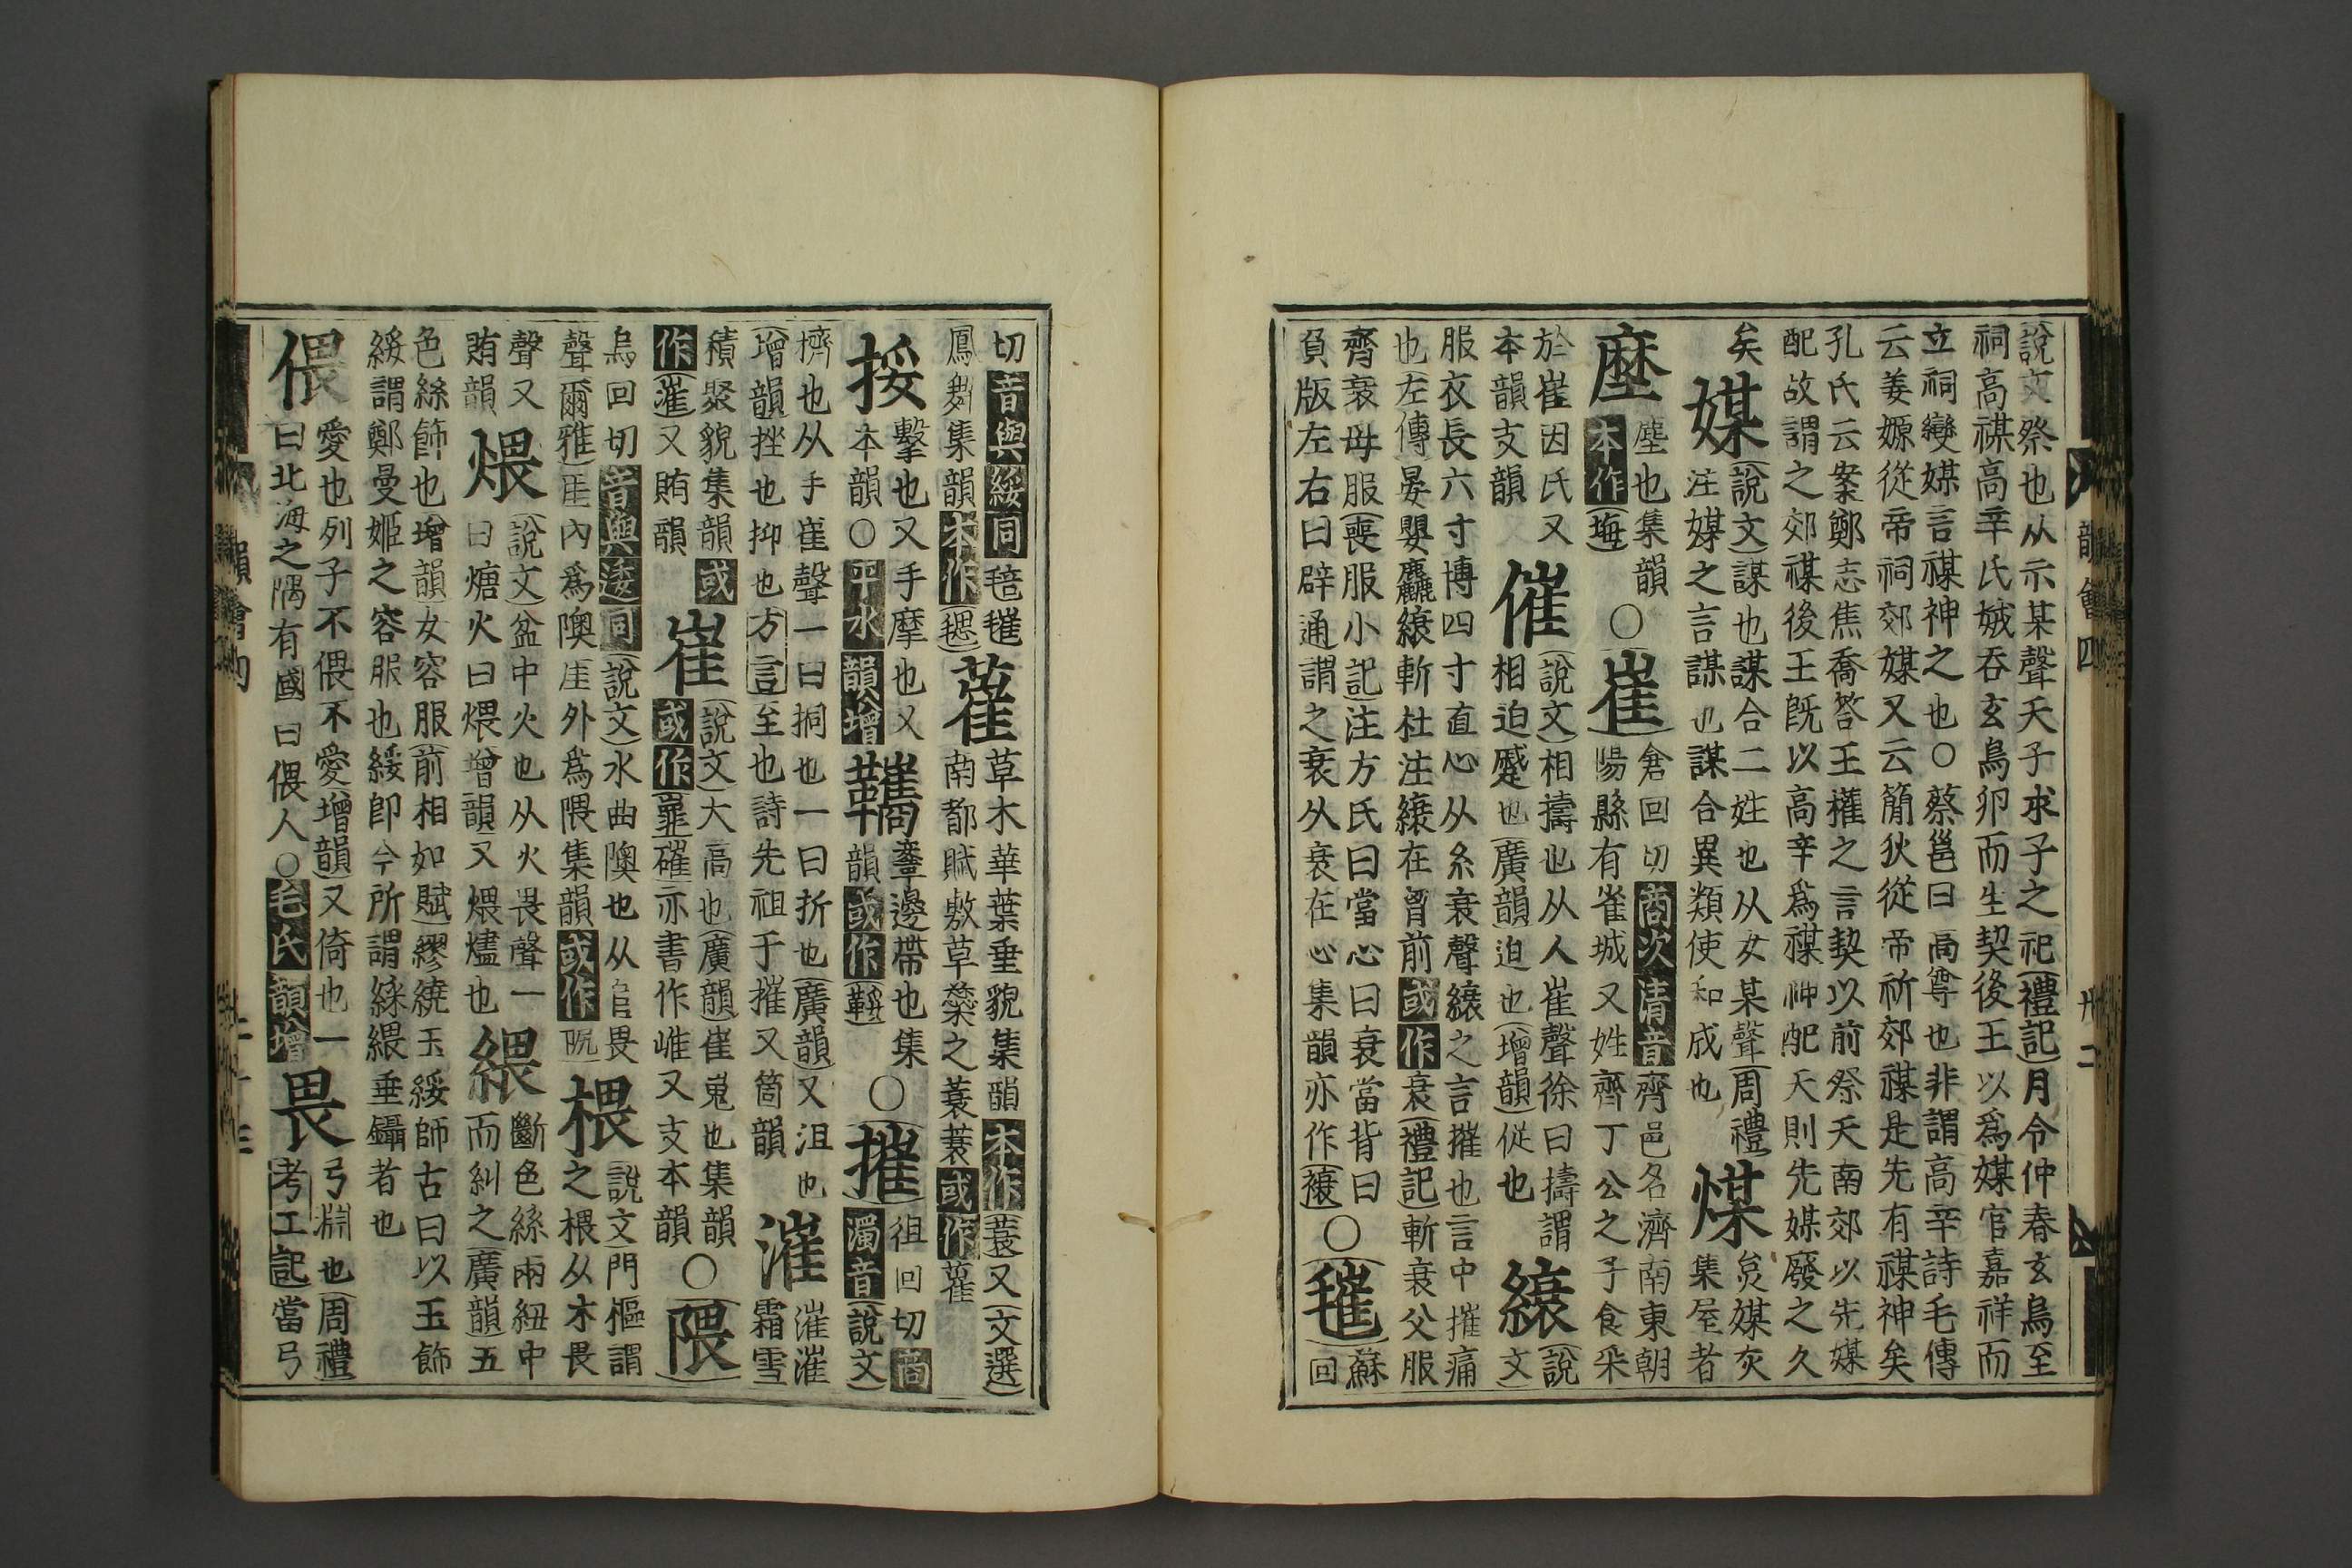 說文祭也从示某聲天子求子之祀禮記月令仲春玄鳥至
祠高禖高辛氏娀吞玄鳥卵而生契後王以爲媒官嘉祥而
立祠變媒言禖神之也○蔡邕曰高尊也非謂高辛詩毛傳
云姜嫄從帝祠郊媒又云簡狄從帝祈郊禖是先有禖神矣
孔氏云案鄭志焦喬答王權之言契以前祭天南郊以先媒
配故謂之郊禖後王既以高辛爲禖神配天則先媒廢之久
矣
媒
說文謀也謀合二姓也从女某聲周禮
注媒之言謀也謀合異類使和成也
煤
炱煤灰
集屋者
塺
塵也集韻
本作㙁
○
崔
倉回切商次清音齊邑名濟南東朝
陽縣有崔城又姓齊丁公之子食采
於崔因氏又
本韻支韻
催
說文相擣也从人崔聲徐曰擣謂
相迫蹙也廣韻迫也增韻促也
縗
說
文
服衣長六寸博四寸直心从糸衰聲縗之言摧也言中摧痛
也左傳晏嬰麤縗斬杜注縗在胷前或作衰禮記斬衰父服
齊衰母服喪服小記注方氏曰當心曰衰當背曰
負版左右曰辟通謂之衰从衰在心集韻亦作䙑
○
毸
蘇
回
切音與綏同毰毸
鳳舞集韻本作毢
蓷
草木華葉垂貌集韻本作蓑又文選
南都賦敷草蘂之蓑蓑或作蓷
挼
擊也又手摩也又
本韻○平水韻增
韉邊帶也集
韻或作䩭
○
摧
徂回切商
濁音說文
擠也从手崔聲一曰挏也一曰折也廣韻又沮也
增韻挫也抑也方言至也詩先祖于摧又箇韻
漼
漼漼
霜雪
積聚貌集韻或
作凗又賄韻
崔
說文大高也廣韻崔嵬也集韻
或作嶊磪亦書作嶉又支本韻
○
隈
烏回切音與逶同說文水曲隩也从𨸏畏
聲爾雅厓內爲隩厓外爲隈集韻或作
椳
說文門樞謂
之椳从木畏
聲又
賄韻
煨
說文盆中火也从火畏聲一
曰煻火曰煨增韻又煨燼也
緭
斷色絲兩紐中
而糾之廣韻五
色絲飾也增韻女容服前相如賦繆繞玉綏師古曰以玉飾
綏謂鄭曼姬之容服也綏卽今所謂綵緭垂鑷者也
偎
愛也列子不偎不愛增韻又倚也一
曰北海之隅有國曰偎人○毛氏韻增
畏
弓淵也周禮
考工記當弓